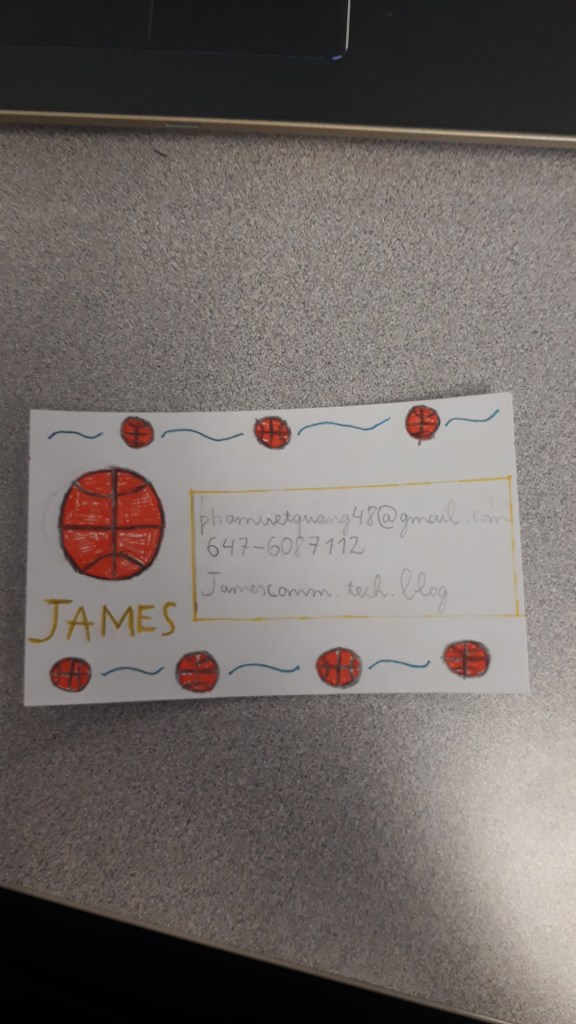 JAMES
phamvietquang48@gmail.com
647-6087112
Jamescomm.tech.blog